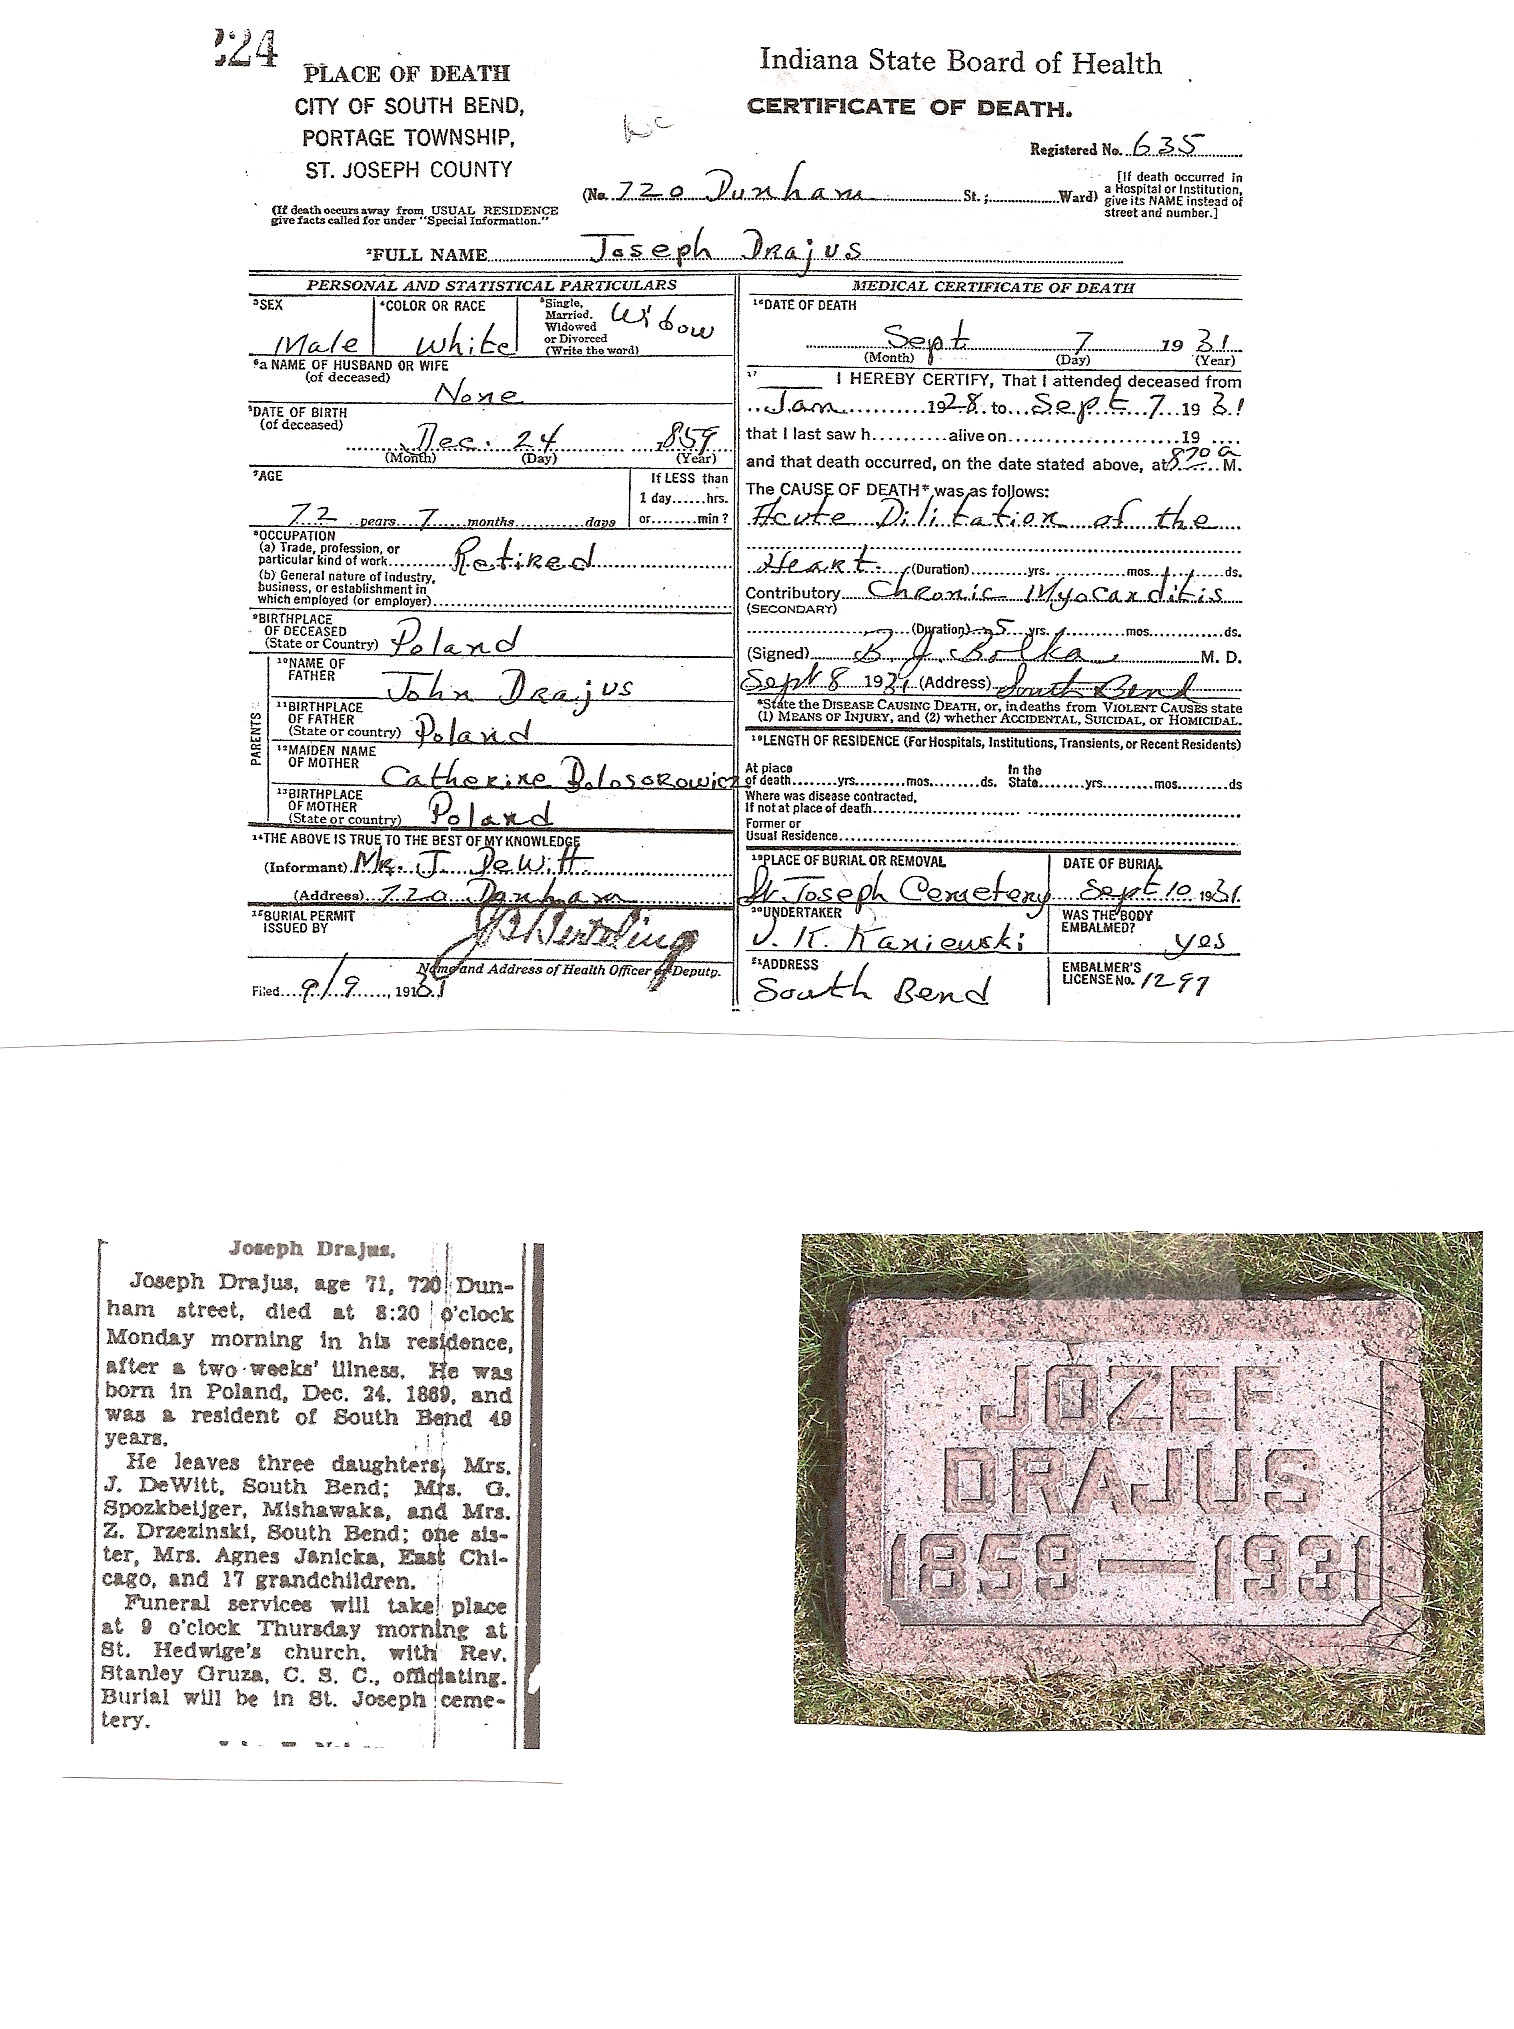 224
PLACE OF DEATH
CITY OF SOUTH BEND,
PORTAGE TOWNSHIP,
ST. JOSEPH COUNTY
(If death occurs away from USUAL RESIDENCE
give facts called for under "Special Information."
Indiana State Board of Health
CERTIFICATE OF DEATH.
Registered No. 635
(No. 720 Dunham St.; Ward)
[If death occurred in
a Hospital or Institution,
give its NAME instead of
street and number.]
²FULL NAME Joseph Drajus
PERSONAL AND STATISTICAL PARTICULARS
³SEX
Male
⁴COLOR OR RACE
White
⁵Single,
Married,
Widowed
or Divorced
(Write the word)
Widow
⁶a NAME OF HUSBAND OR WIFE
(of deceased)
None
⁶DATE OF BIRTH
(of deceased)
Dec. 24 1859
(Month) (Day) (Year)
⁷AGE
72 years 7 months days
If LESS than
1 day......hrs.
or........min?
⁸OCCUPATION
(a) Trade, profession, or
particular kind of work Retired
(b) General nature of industry,
business, or establishment in
which employed (or employer)
⁹BIRTHPLACE
OF DECEASED
(State or Country) Poland
PARENTS
¹⁰NAME OF
FATHER
John Drajus
¹¹BIRTHPLACE
OF FATHER
(State or country) Poland
¹²MAIDEN NAME
OF MOTHER
Catherine
¹³BIRTHPLACE
OF MOTHER
(State or country) Poland
¹⁴THE ABOVE IS TRUE TO THE BEST OF MY KNOWLEDGE
(Informant) Mr. J. DeWitt
(Address) 720 Dunham
¹⁵BURIAL PERMIT
ISSUED BY
Name and Address of Health Officer or Deputy.
Filed 9/9, 1931
MEDICAL CERTIFICATE OF DEATH
¹⁶DATE OF DEATH
Sept 7 1931
(Month) (Day) (Year)
¹⁷ I HEREBY CERTIFY, That I attended deceased from
Jan 1928 to Sept 7 1931
that I last saw h..........alive on....................19....
and that death occurred, on the date stated above, at M.
The CAUSE OF DEATH* was as follows:
Acute Dilitation of the
Heart (Duration) yrs. mos. ds.
Contributory Chronic Myocarditis
(SECONDARY)
(Duration) 5 yrs. mos. ds.
(Signed) B. J. Bolka M. D.
Sept 8 1931 (Address) South Bend
*State the DISEASE CAUSING DEATH, or, in deaths from VIOLENT CAUSES state
(1) MEANS OF INJURY, and (2) whether ACCIDENTAL, SUICIDAL, or HOMICIDAL.
¹⁸LENGTH OF RESIDENCE (For Hospitals, Institutions, Transients, or Recent Residents)
At place
of death........yrs.........mos.........ds.
In the
State........yrs.........mos.........ds
Where was disease contracted,
If not at place of death
Former or
Usual Residence
¹⁹PLACE OF BURIAL OR REMOVAL
St. Joseph Cemetery
DATE OF BURIAL
Sept 10 1931
²⁰UNDERTAKER
J. K. Kaniewski
WAS THE BODY
EMBALMED?
yes
²¹ADDRESS
South Bend
EMBALMER'S
LICENSE No. 1297
Joseph Drajus.
Joseph Drajus, age 71, 720 Dun-
ham street, died at 8:20 o'clock
Monday morning in his residence,
after a two weeks' illness. He was
born in Poland, Dec. 24, 1869, and
was a resident of South Bend 49
years.
He leaves three daughters, Mrs.
J. DeWitt, South Bend; Mrs. G.
Spozkbeijger, Mishawaka, and Mrs.
Z. Drzezinski, South Bend; one sis-
ter, Mrs. Agnes Janicka, East Chi-
cago, and 17 grandchildren.
Funeral services will take place
at 9 o'clock Thursday morning at
St. Hedwige's church, with Rev.
Stanley Gruza, C. S. C., officiating.
Burial will be in St. Joseph ceme-
tery.
JÓZEF
DRAJUS
1859—1931